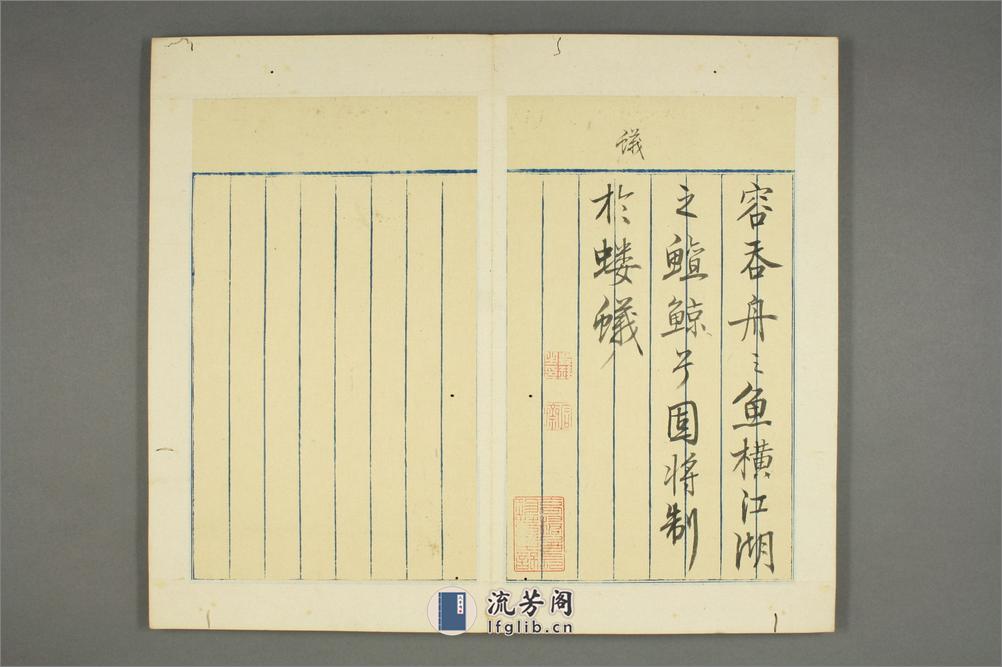 蟻
容吞舟之魚橫江湖
之鱣鯨兮固將制
於螻蟻
流芳阁
lfglib.cn